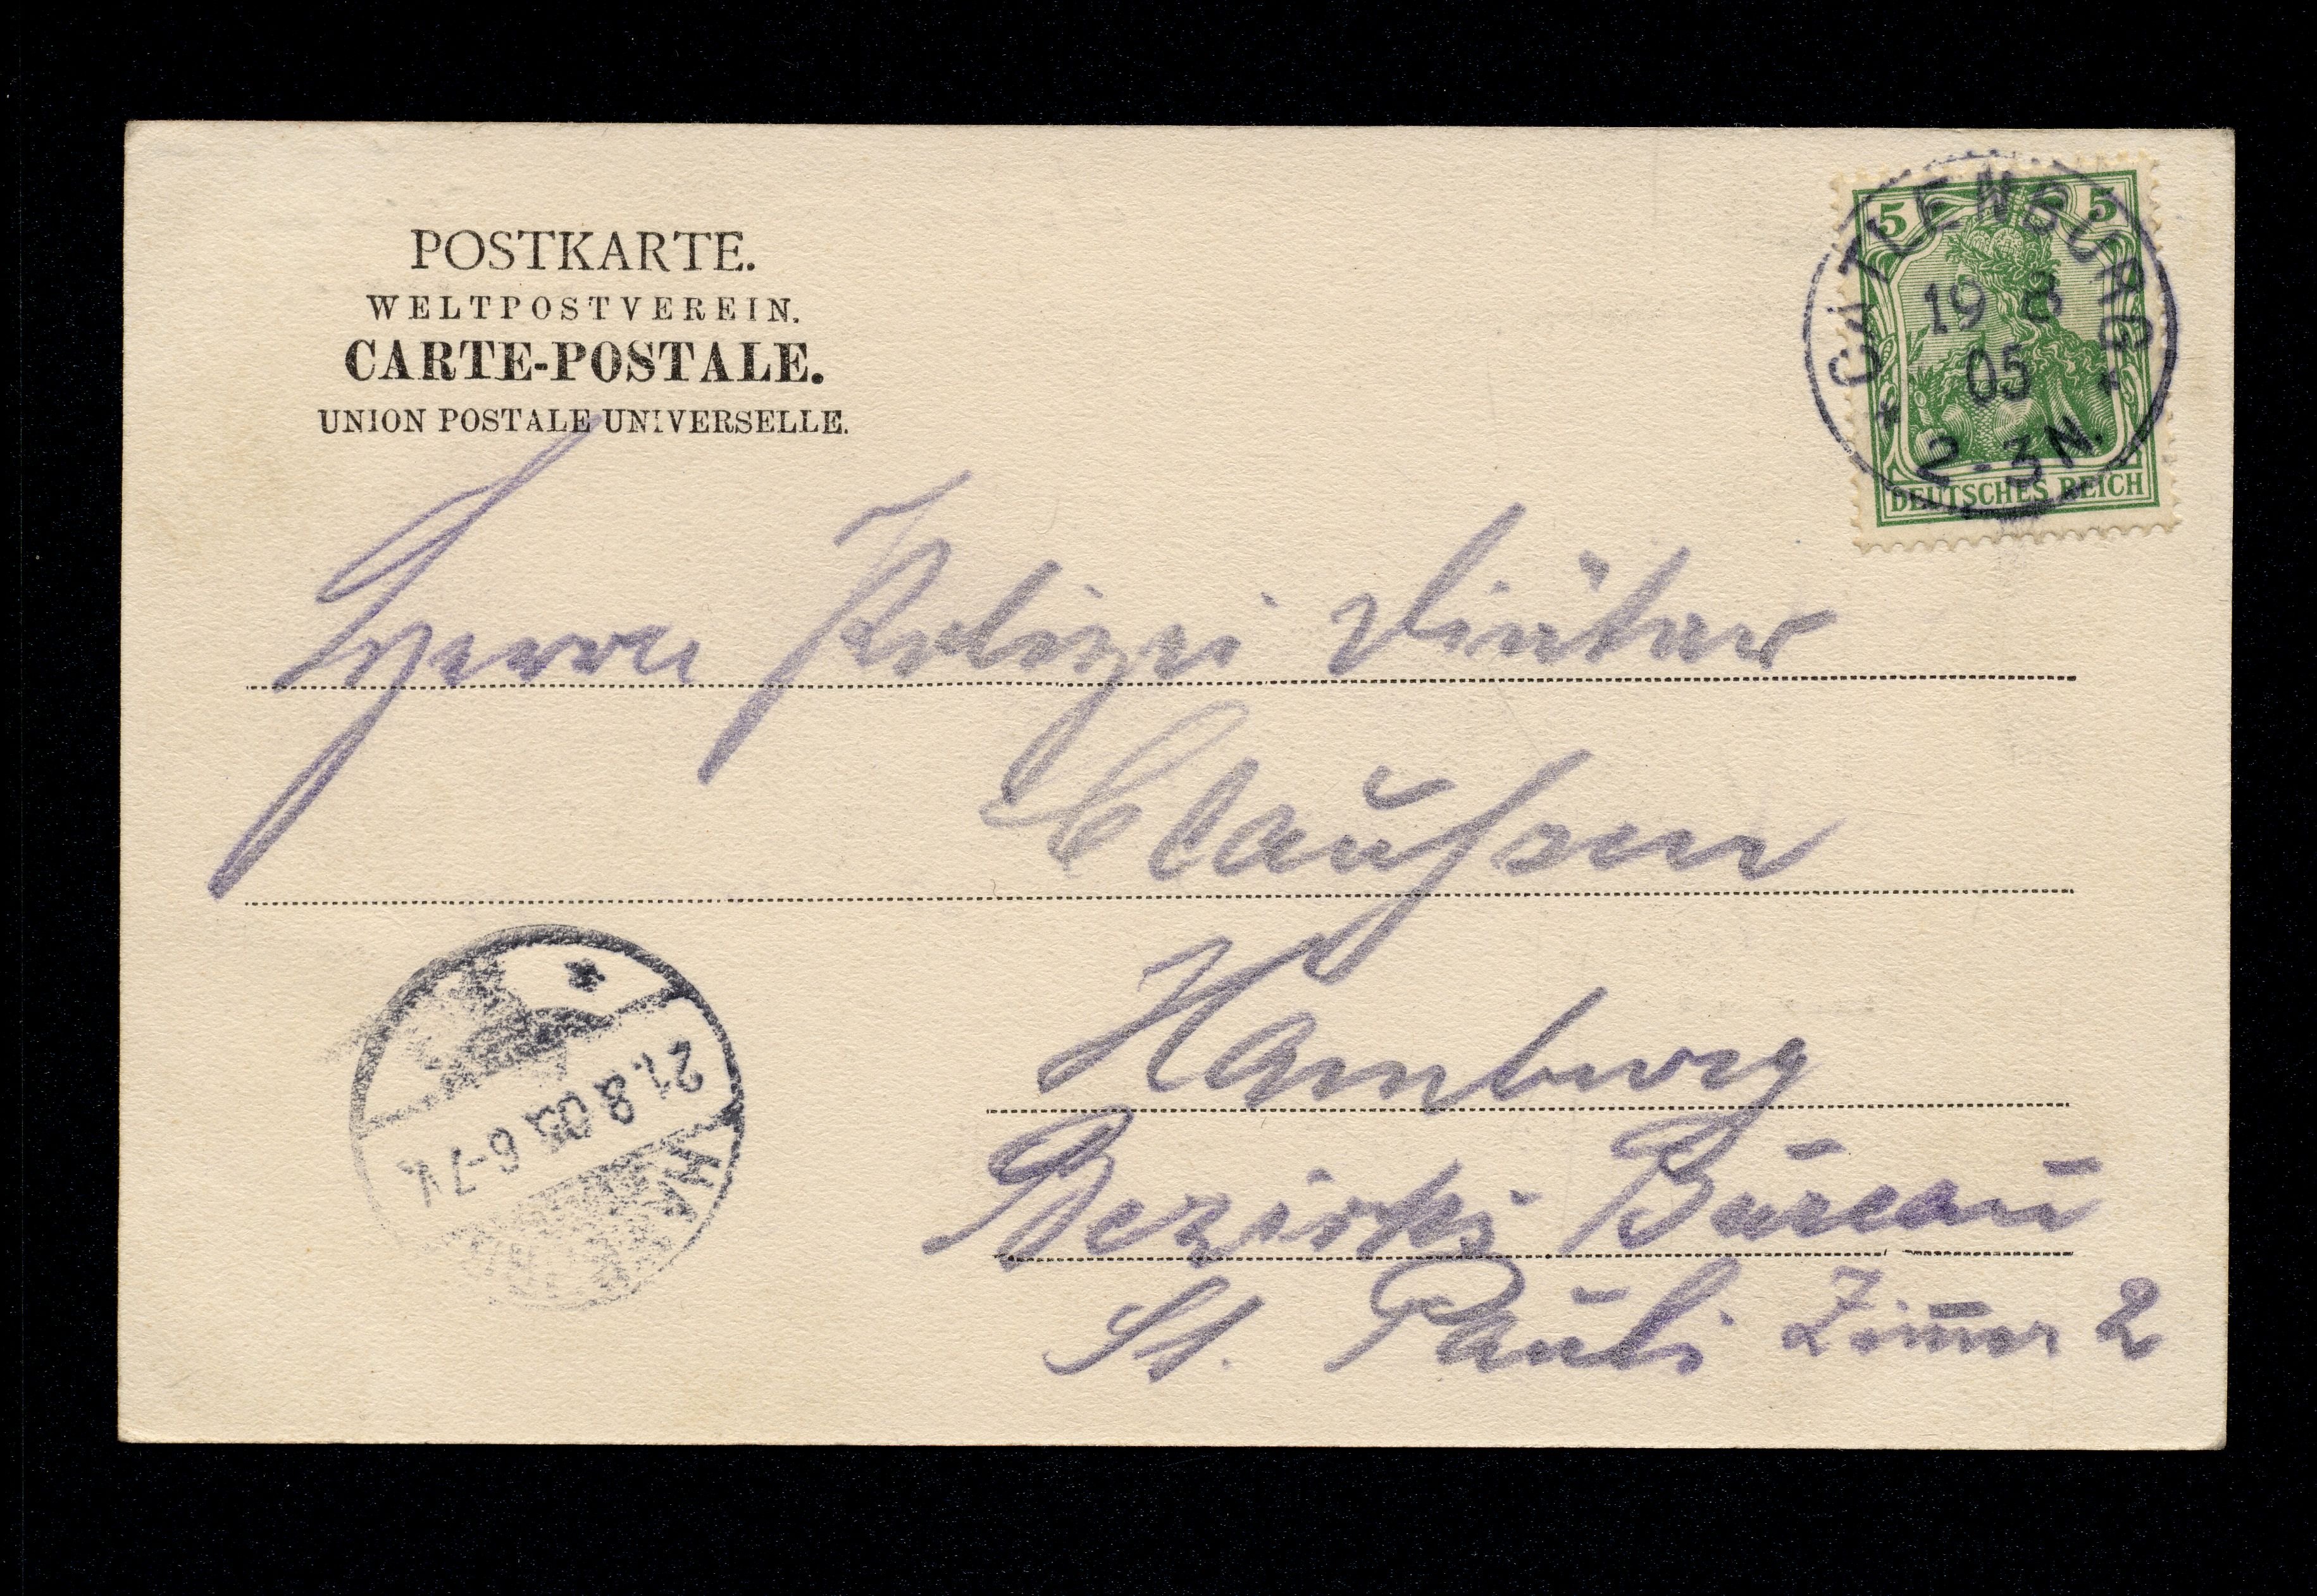 POSTKARTE.
WELTPOSTVEREIN.
CARTE-POSTALE.
UNION POSTALE UNIVERSELLE.
5 5
DEUTSCHES REICH
CATLENBURG
19 8
05
2-3N.
Herrn Polizei Diätar
Claussen
Hamburg
Bezirks Bureau
St. Pauli Zim̅er 2
21.8.05 6-7V.
HA